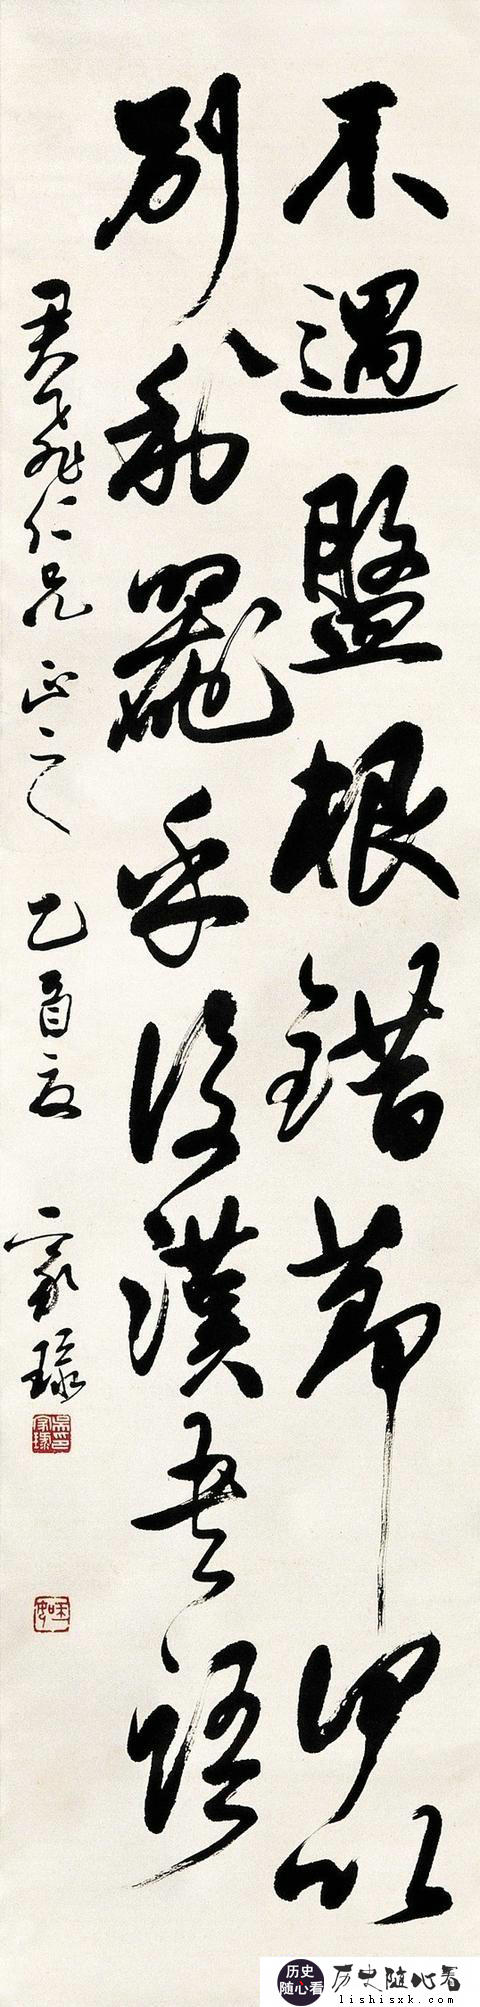 不遇盤根錯節何以
別利器乎後漢書語
君飛仁兄正之 乙酉夏 家琭
吳家琭印
味如
历史随心看
历史随心看
lishisxk.com